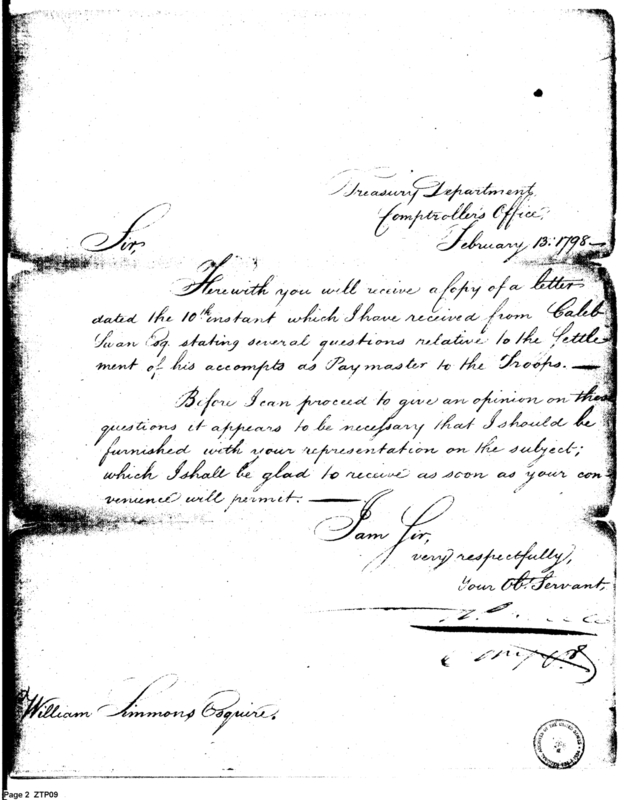 Treasury Department
Comptroller's Office,
February 13: 1798—
Sir,
Herewith you will receive a Copy of a letter
dated the 10th instant which I have received from Caleb
Swan Esq. stating several questions relative to the Settle
ment of his accompts as Paymaster to the Troops. —
Before I can proceed to give an opinion on those
questions it appears to be necessary that I should be
furnished with your representation on the subject;
which I shall be glad to receive as soon as your con
venience will permit. —
I am Sir,
very respectfully,
Your Obt. Servant,
William Simmons Esquire.
Page 2 ZTP09